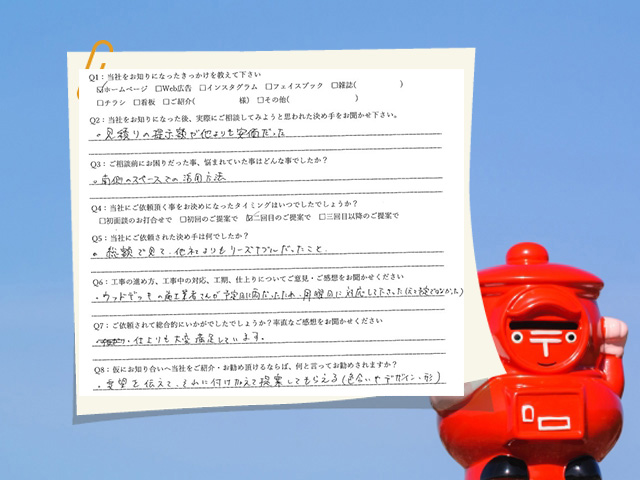 Q1：当社をお知りになったきっかけを教えて下さい
☑ホームページ □Web広告 □インスタグラム □フェイスブック □雑誌( )
□チラシ □看板 □ご紹介( 様) □その他( )
Q2：当社をお知りになった後、実際にご相談してみようと思われた決め手をお聞かせ下さい。
。見積りの提示額が他よりも安価だった
Q3：ご相談前にお困りだった事、悩まれていた事はどんな事でしたか？
。南側のスペースでの活用方法
Q4：当社にご依頼頂く事をお決めになったタイミングはいつでしたでしょうか？
□初面談のお打合せで □初回のご提案で ☑二回目のご提案で □三回目以降のご提案で
Q5：当社にご依頼された決め手は何でしたか？
。総額で見て、他社よりもリーズナブルだったこと。
Q6：工事の進め方、工事中の対応、工期、仕上りについてご意見・ご感想をお聞かせください
・ウッドデッキの施工業者さんが予定日に雨だったため、月曜日に対応して下さった
Q7：ご依頼されて総合的にいかがでしたでしょうか？率直なご感想をお聞かせください
仕上よりも大変満足しています。
Q8：仮にお知り合いへ当社をご紹介・お勧め頂けるならば、何と言ってお勧めされますか？
。要望を伝えて、それに付け加えて提案してもらえる(色合いやデザイン、形)